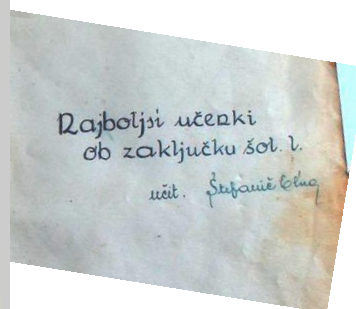 Najboljši učenki
ob zaključku šol. l.
učit. Štefanič Elna